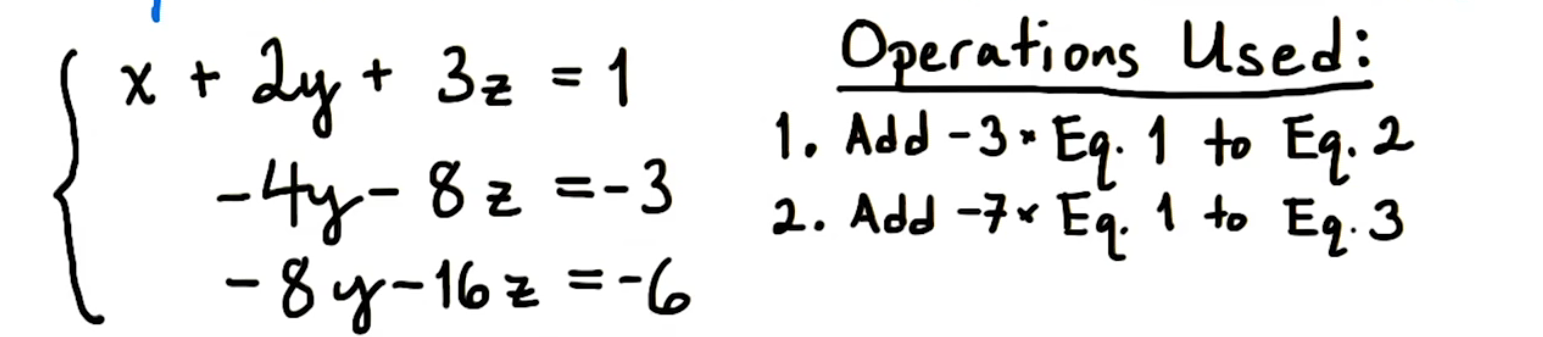 x + 2y + 3z = 1
-4y - 8z = -3
-8y - 16z = -6
Operations Used:
1. Add -3 × Eq. 1 to Eq. 2
2. Add -7 × Eq. 1 to Eq. 3